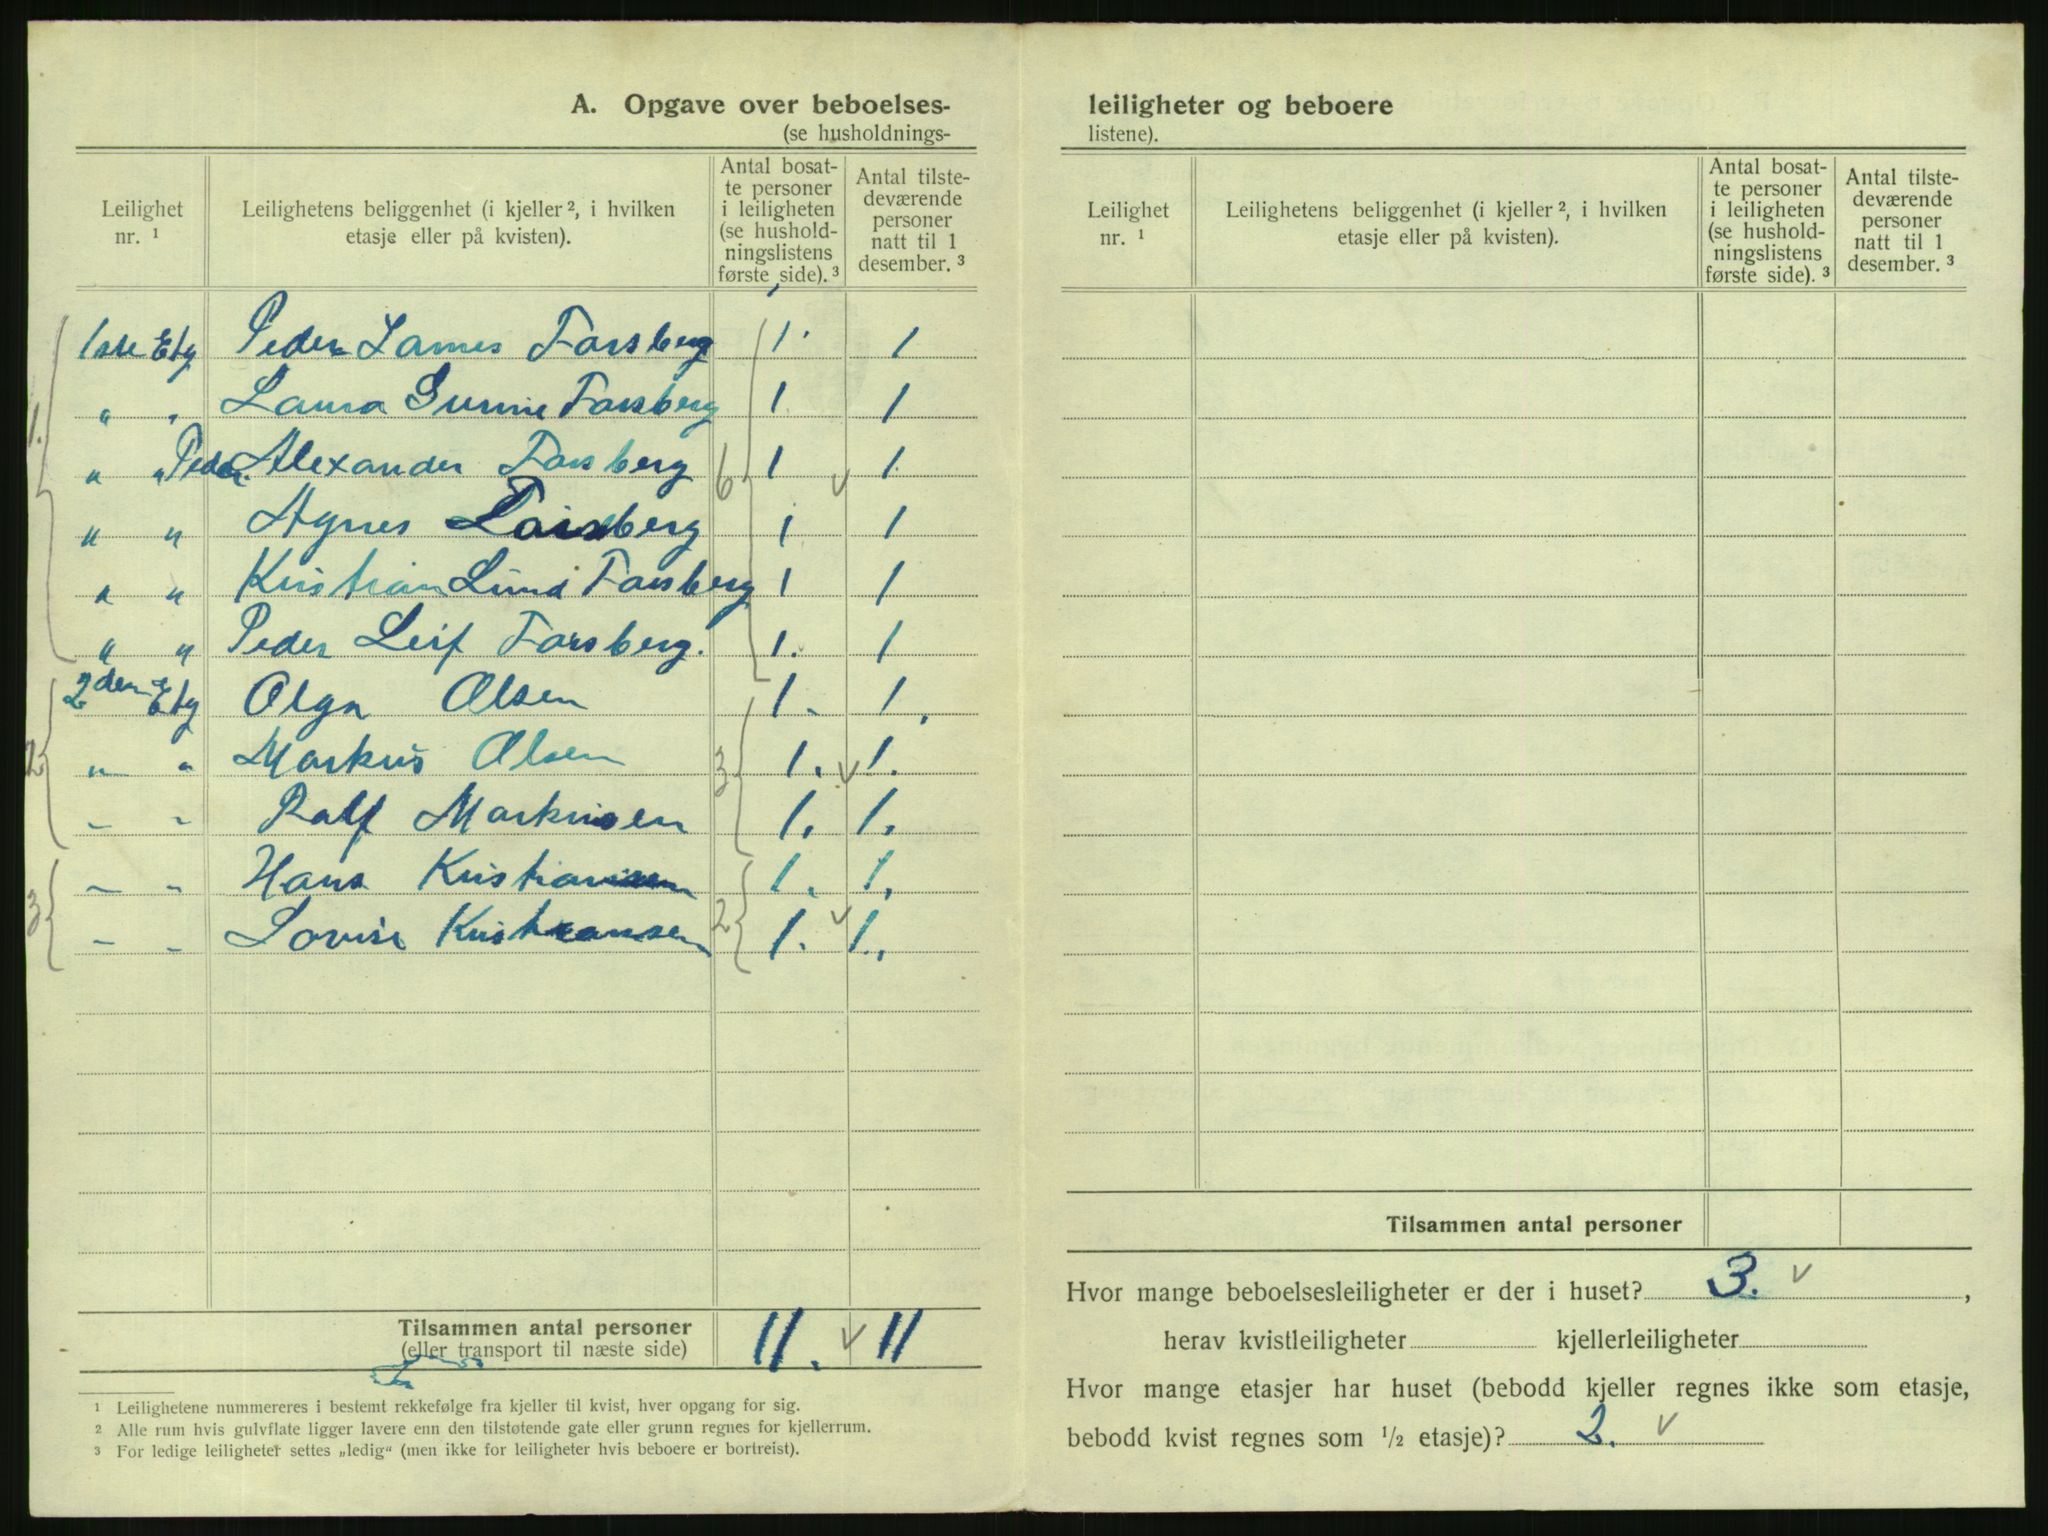 A. Opgave over beboelses-
(se husholdnings-
Leilighet nr. ¹
Leilighetens beliggenhet (i kjeller ², i hvilken etasje eller på kvisten).
Antal bosat-
te personer
i leiligheten
(se hushold-
ningslistens
første side). ³
Antal tilste-
deværende
personer
natt til 1
desember. ³
1. 1ste Etg Peder James Forsberg 1. 1
" " Laura Gunnie Forsberg 1. 1
" " Peder Alexander Forsberg 6 1 v 1.
" " Agnes Forsberg 1 1
" " Kristian Lund Forsberg 1 1
" " Peder Leif Forsberg. 1. 1
2den Etg Olga Olsen 1. 1.
2 " " Markus Olsen 3 1. v 1.
– – Ralf Markusen 1. 1.
– – Hans Kristiansen 1. 1.
3 – – Lovise Kristiansen 2 1. v 1.
Tilsammen antal personer 11. v 11
(eller transport til næste side)
¹ Leilighetene nummereres i bestemt rekkefølge fra kjeller til kvist, hver opgang for sig.
² Alle rum hvis gulvflate ligger lavere enn den tilstøtende gate eller grunn regnes for kjellerrum.
³ For ledige leiligheter settes „ledig“ (men ikke for leiligheter hvis beboere er bortreist).
leiligheter og beboere
listene).
Leilighet nr. ¹
Leilighetens beliggenhet (i kjeller ², i hvilken etasje eller på kvisten).
Antal bosat-
te personer
i leiligheten
(se hushold-
ningslistens
første side). ³
Antal tilste-
deværende
personer
natt til 1
desember. ³
Tilsammen antal personer
Hvor mange beboelsesleiligheter er der i huset? 3. v,
herav kvistleiligheter kjellerleiligheter
Hvor mange etasjer har huset (bebodd kjeller regnes ikke som etasje,
bebodd kvist regnes som ½ etasje)? 2. v